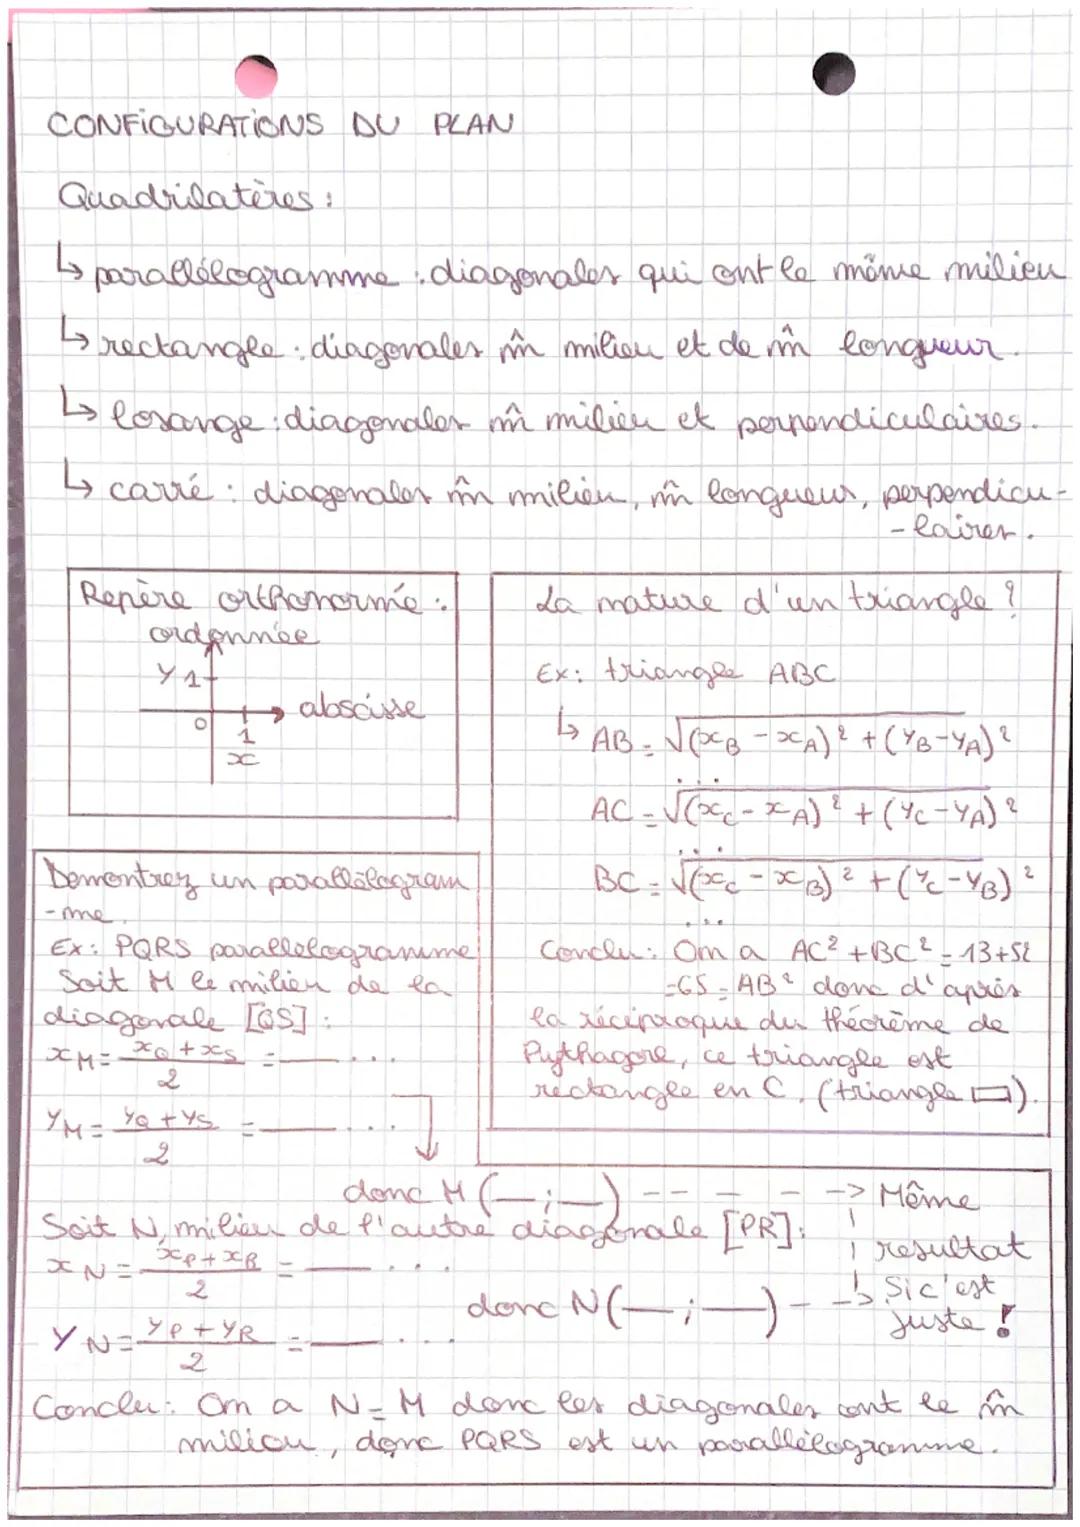 CONFIGURATIONS DU PLAN
Quadrilatères :
↳ parallélogramme : diagonales qui ont le même milieu
↳ rectangle : diagonales m̂ milieu et de m̂ longueur.
↳ losange : diagonales m̂ milieu et perpendiculaires.
↳ carré : diagonales m̂ milieu, m̂ longueur, perpendicu-
-laires.
Repère orthonormé :
ordonnée
Y 1
abscisse
0
1
x
La nature d'un triangle ?
Ex: triangle ABC
↳ AB = √(xB - xA)² + (yB - yA)²
...
AC = √(xC - xA)² + (yC - yA)²
...
BC = √(xC - xB)² + (yC - yB)²
...
Conclu : On a AC² + BC² = 13+52
=65 = AB² donc d'après
la réciproque du théorème de
Pythagore, ce triangle est
rectangle en C. (triangle ▭).
Demontrez un parallélogram
-me.
Ex: PQRS parallélogramme
Soit M le milieu de la
diagonale [QS] :
xM = xQ + xS / 2 = ___ ...
yM = yQ + yS / 2 = ___ ...
donc M (_;_) - - - - -> Même
Soit N, milieu de l'autre diagonale [PR] :
resultat
xN = xP + xR / 2 = ___ ...
Si c'est
donc N (_;_) - -> juste !
YN = yP + yR / 2 = ___ ...
Conclu : On a N = M donc les diagonales ont le m̂
milieu, donc PQRS est un parallélogramme.